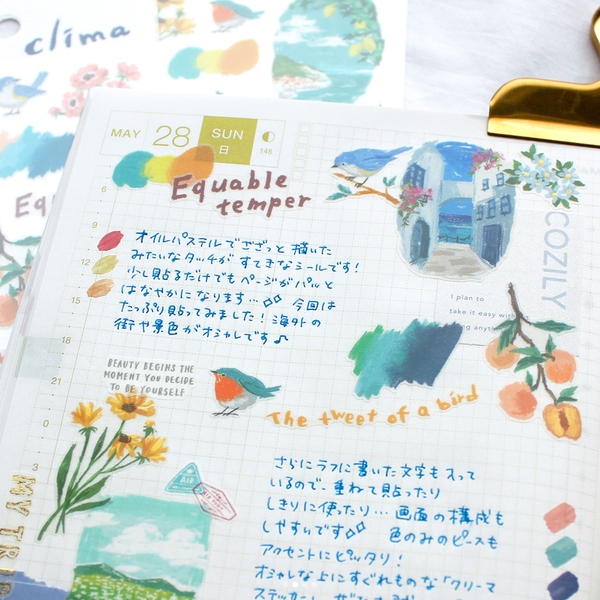 clima
MAY 28 SUN
日
148
Equable
temper
6
9
12
15
18
21
0
3
オイルパステルでざざっと描いた
みたいなタッチが すてきなシールです!
少し貼るだけでもページがパッと
はなやかになります… 今回は
たっぷり貼ってみました!海外の
街や景色がオシャレです♪
COZILY
I plan to
take it easy without
BEAUTY BEGINS THE
MOMENT YOU DECIDE
TO BE YOURSELF
The tweet of a bird
さらにラフに書いた文字も入って
いるので、重ねて貼ったり
しきりに使ったり… 画面の構成も
しやすいです 色のみのピースも
アクセントにピッタリ!
オシャレな上にすぐれものな「クリーマ
MY TRIP